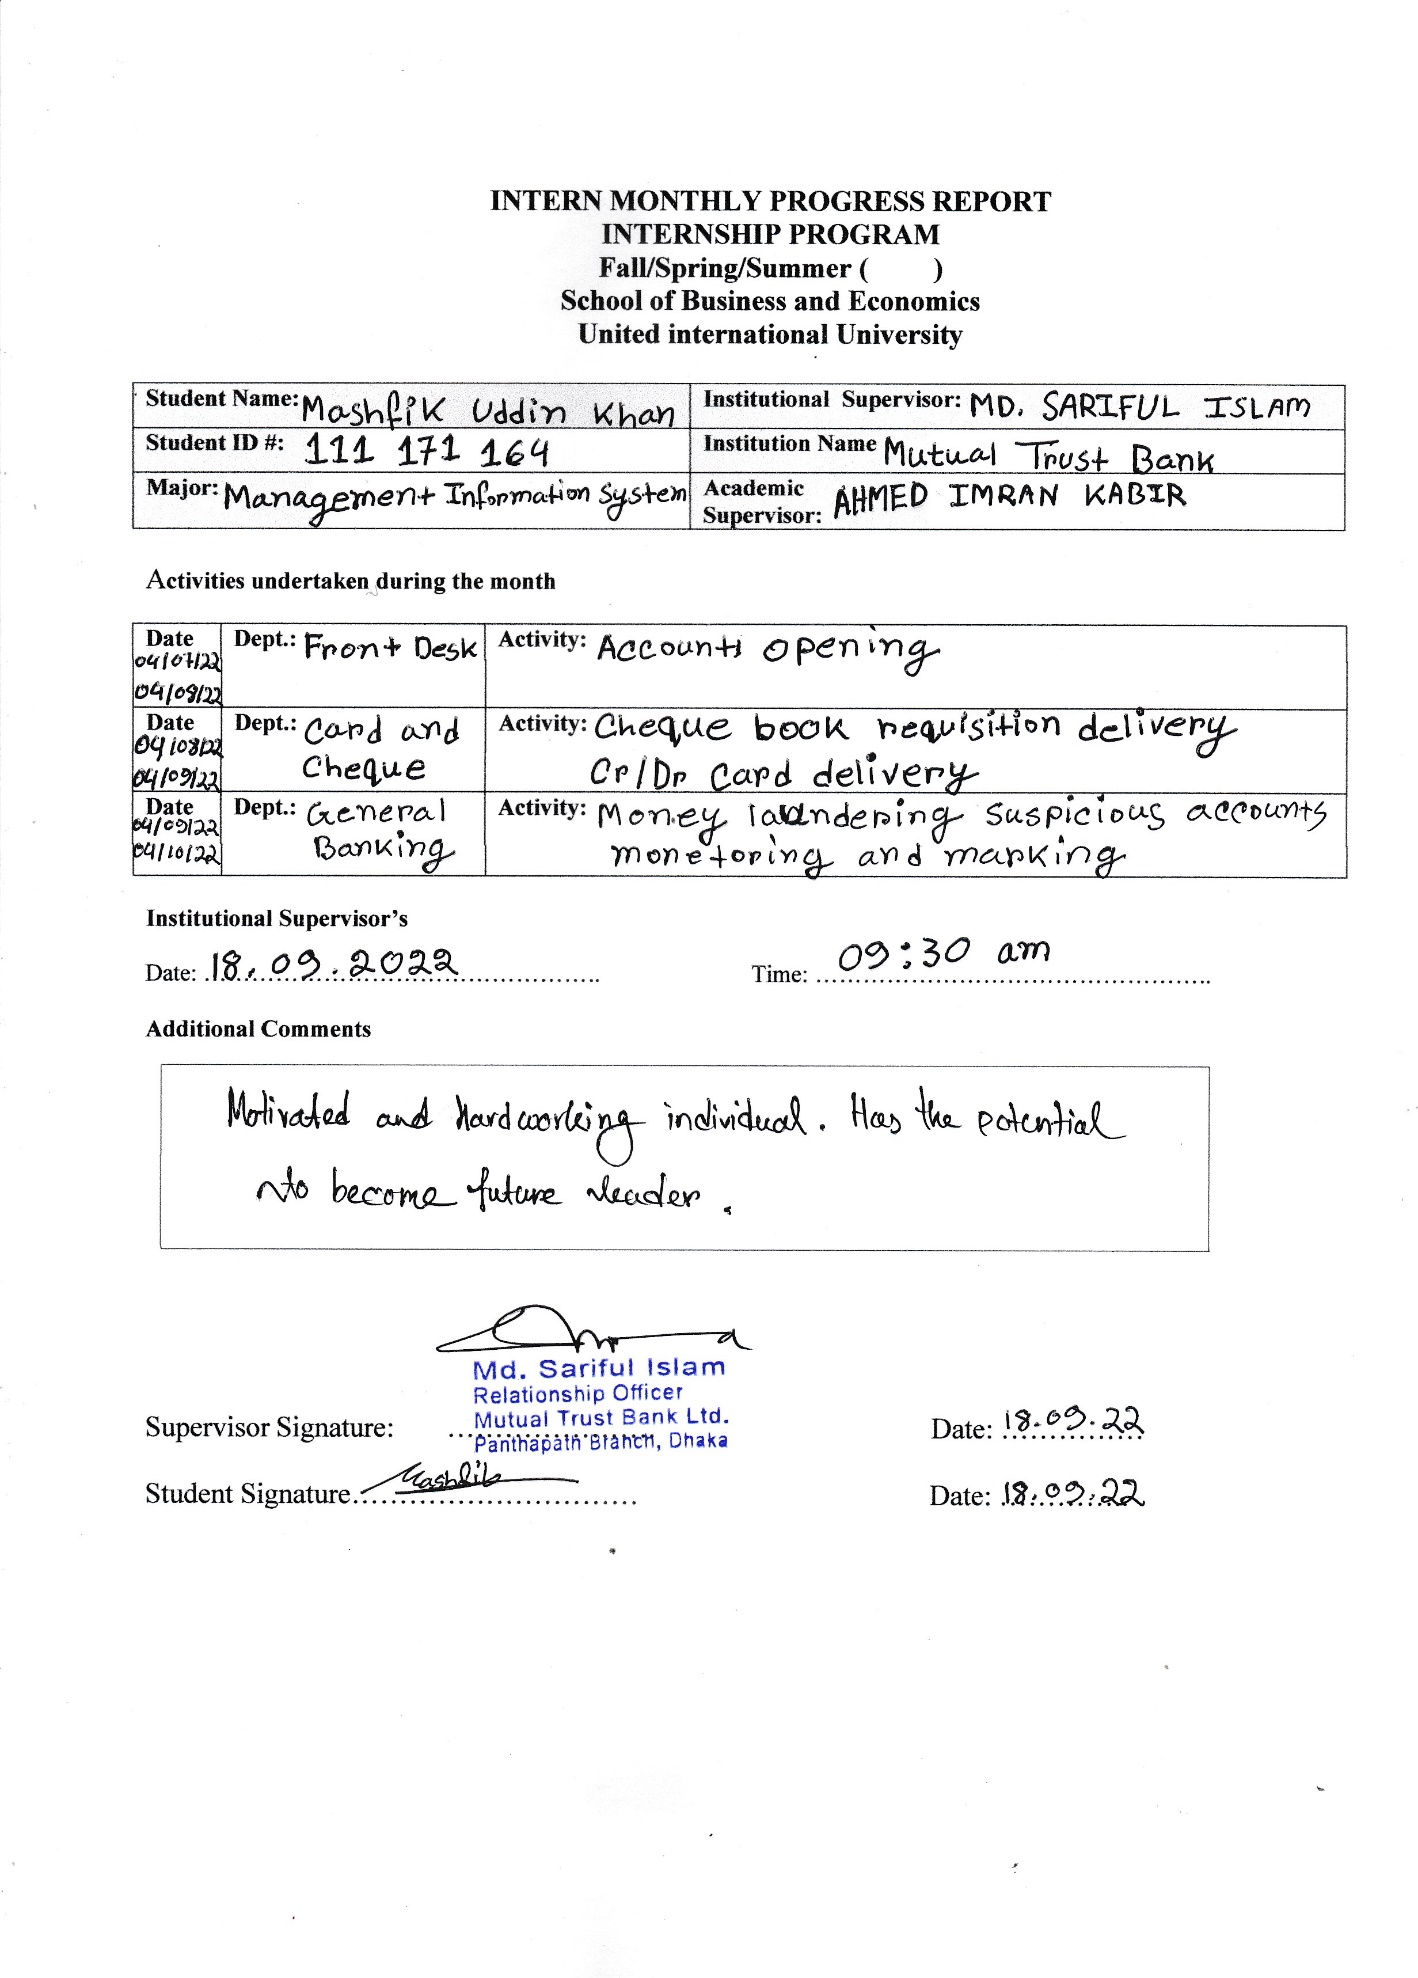 INTERN MONTHLY PROGRESS REPORT
INTERNSHIP PROGRAM
Fall/Spring/Summer ( )
School of Business and Economics
United international University
Student Name: Mashfik Uddin Khan
Institutional Supervisor: MD. SARIFUL ISLAM
Student ID #: 111 171 164
Institution Name Mutual Trust Bank
Major: Management Information System
Academic
Supervisor: AHMED IMRAN KABIR
Activities undertaken during the month
Date
04/07/22
04/08/22
Dept.: Front Desk
Activity: Accounts opening
Date
04/08/22
04/09/22
Dept.: Card and
Cheque
Activity: Cheque book requisition delivery
Cr/Dr Card delivery
Date
04/09/22
04/10/22
Dept.: General
Banking
Activity: Money laundering suspicious accounts
monetoring and marking
Institutional Supervisor's
Date: 18.09.2022
Time: 09:30 am
Additional Comments
Motivated and hardworking individual. Has the potential
to become future leader.
Md. Sariful Islam
Relationship Officer
Mutual Trust Bank Ltd.
Panthapath Branch, Dhaka
Supervisor Signature:
Date: 18.09.22
Student Signature Mashfik
Date: 18.09.22